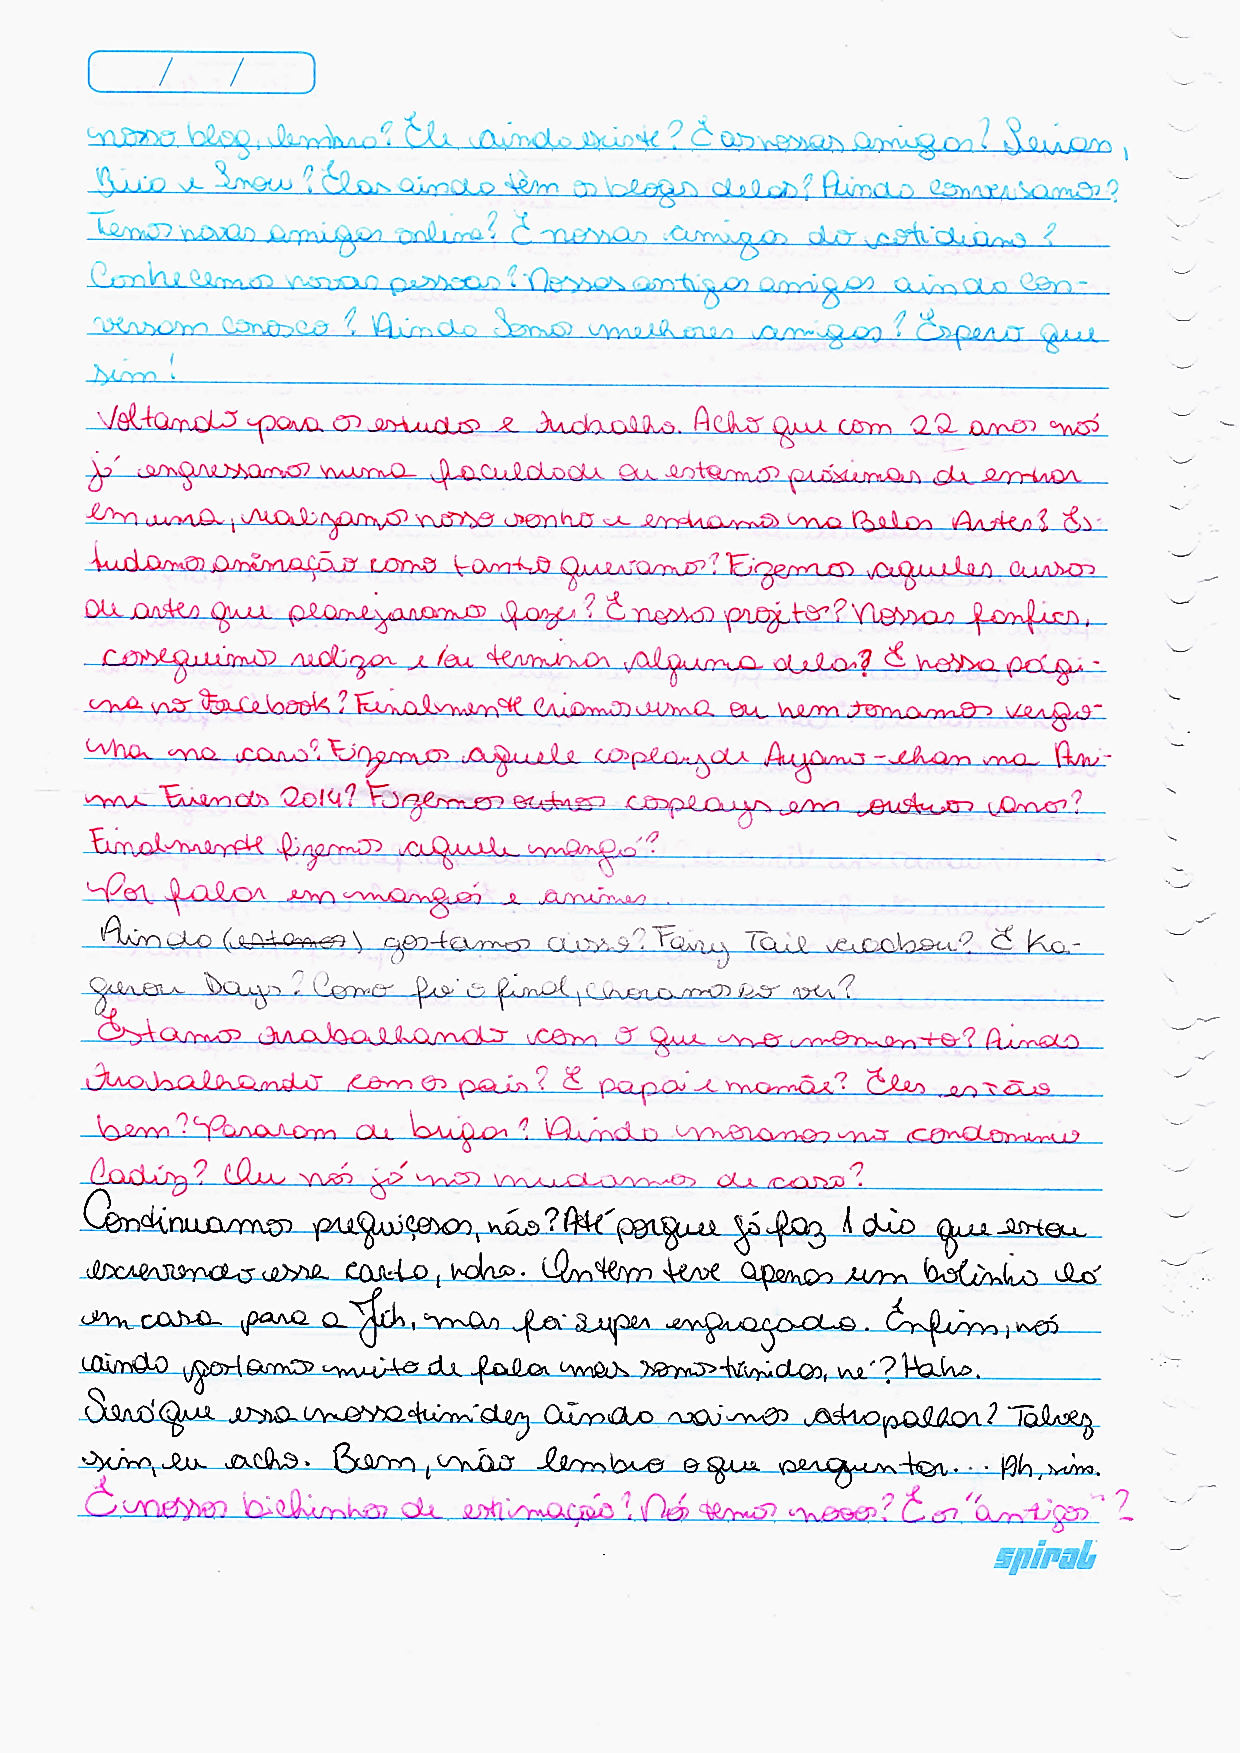 / /
nosso blog, lembra? Ele ainda existe? E as nossas amigas?
e Snow? Elas ainda têm os blogs delas? Ainda conversamos?
Temos novas amigas online? E nossas amigas do cotidiano?
Conhecemos novas pessoas? Nossas antigas amigas ainda con-
versam conosco? Ainda somos melhores amigas? Espero que
sim!
Voltando para os estudos e trabalho. Acho que com 22 anos nós
já engressamos numa faculdade ou estamos próximas de entrar
em uma, realizamos nosso sonho e entramos na Belas Artes? Es-
tudamos animação como tanto queriamos? Fizemos aqueles cursos
de artes que planejaramos fazer? E nosso projeto? Nossas fanfics,
conseguimos redizar e/ou terminar alguma delas? E nossa pági-
na no Facebook? Finalmente criamos uma ou nem tomamos vergo-
nha na cara? Fizemos aquele cosplay de Ayano-chan na Ani-
me Friends 2014? Fizemos outros cosplays em outros anos?
Finalmente fizemos aquele mangá?
Por falar em mangás e animes...
Ainda (estamos) gostamos disso? Fairy Tail acabou? E Ka-
gerou Days? Como foi o final, choramos ao ver?
Estamos trabalhando com o que no momento? Ainda
trabalhando com os pais? E papai e mamãe? Eles estão
bem? Pararam de brigar? Ainda moramos no condominio
Cadiz? Ou nós já nos mudamos de casa?
Continuamos preguiçosas, não? Até porque já faz 1 dia que estou
escrevendo essa carta, haha. Ontem teve apenas um bolinho lá
em casa para a Jéh, mas foi super engraçado. Enfim, nós
ainda gostamos muito de falar mas somos tímidas, né? Haha.
Será que essa nossa timidez ainda vai nos atrapalhar? Talvez
sim, eu acho. Bem, não lembro o que perguntar... Ah, sim.
E nossos bichinhos de estimação? Nós temos novos? E os "antigos"?
spiral